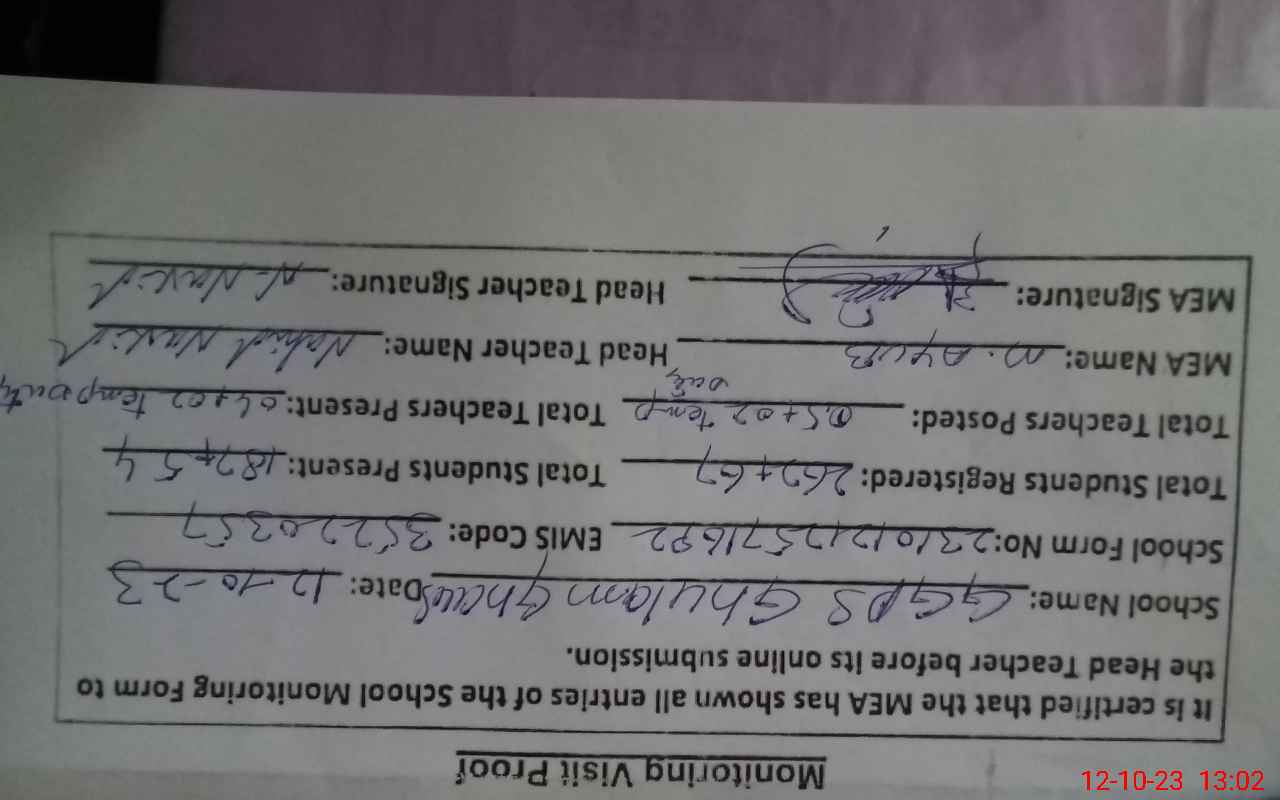 Monitoring Visit Proof
It is certified that the MEA has shown all entries of the School Monitoring Form to
the Head Teacher before its online submission.
School Name: GGPS Ghulam Ghous Date: 12-10-23
School Form No: EMIS Code: 35220357
Total Students Registered: 262+67 Total Students Present: 187+54
Total Teachers Posted: 05+02 temp Duty Total Teachers Present: 04+02 temp Duty
MEA Name: M. Ayub Head Teacher Name: Nahid
MEA Signature: Head Teacher Signature:
12-10-23 13:02